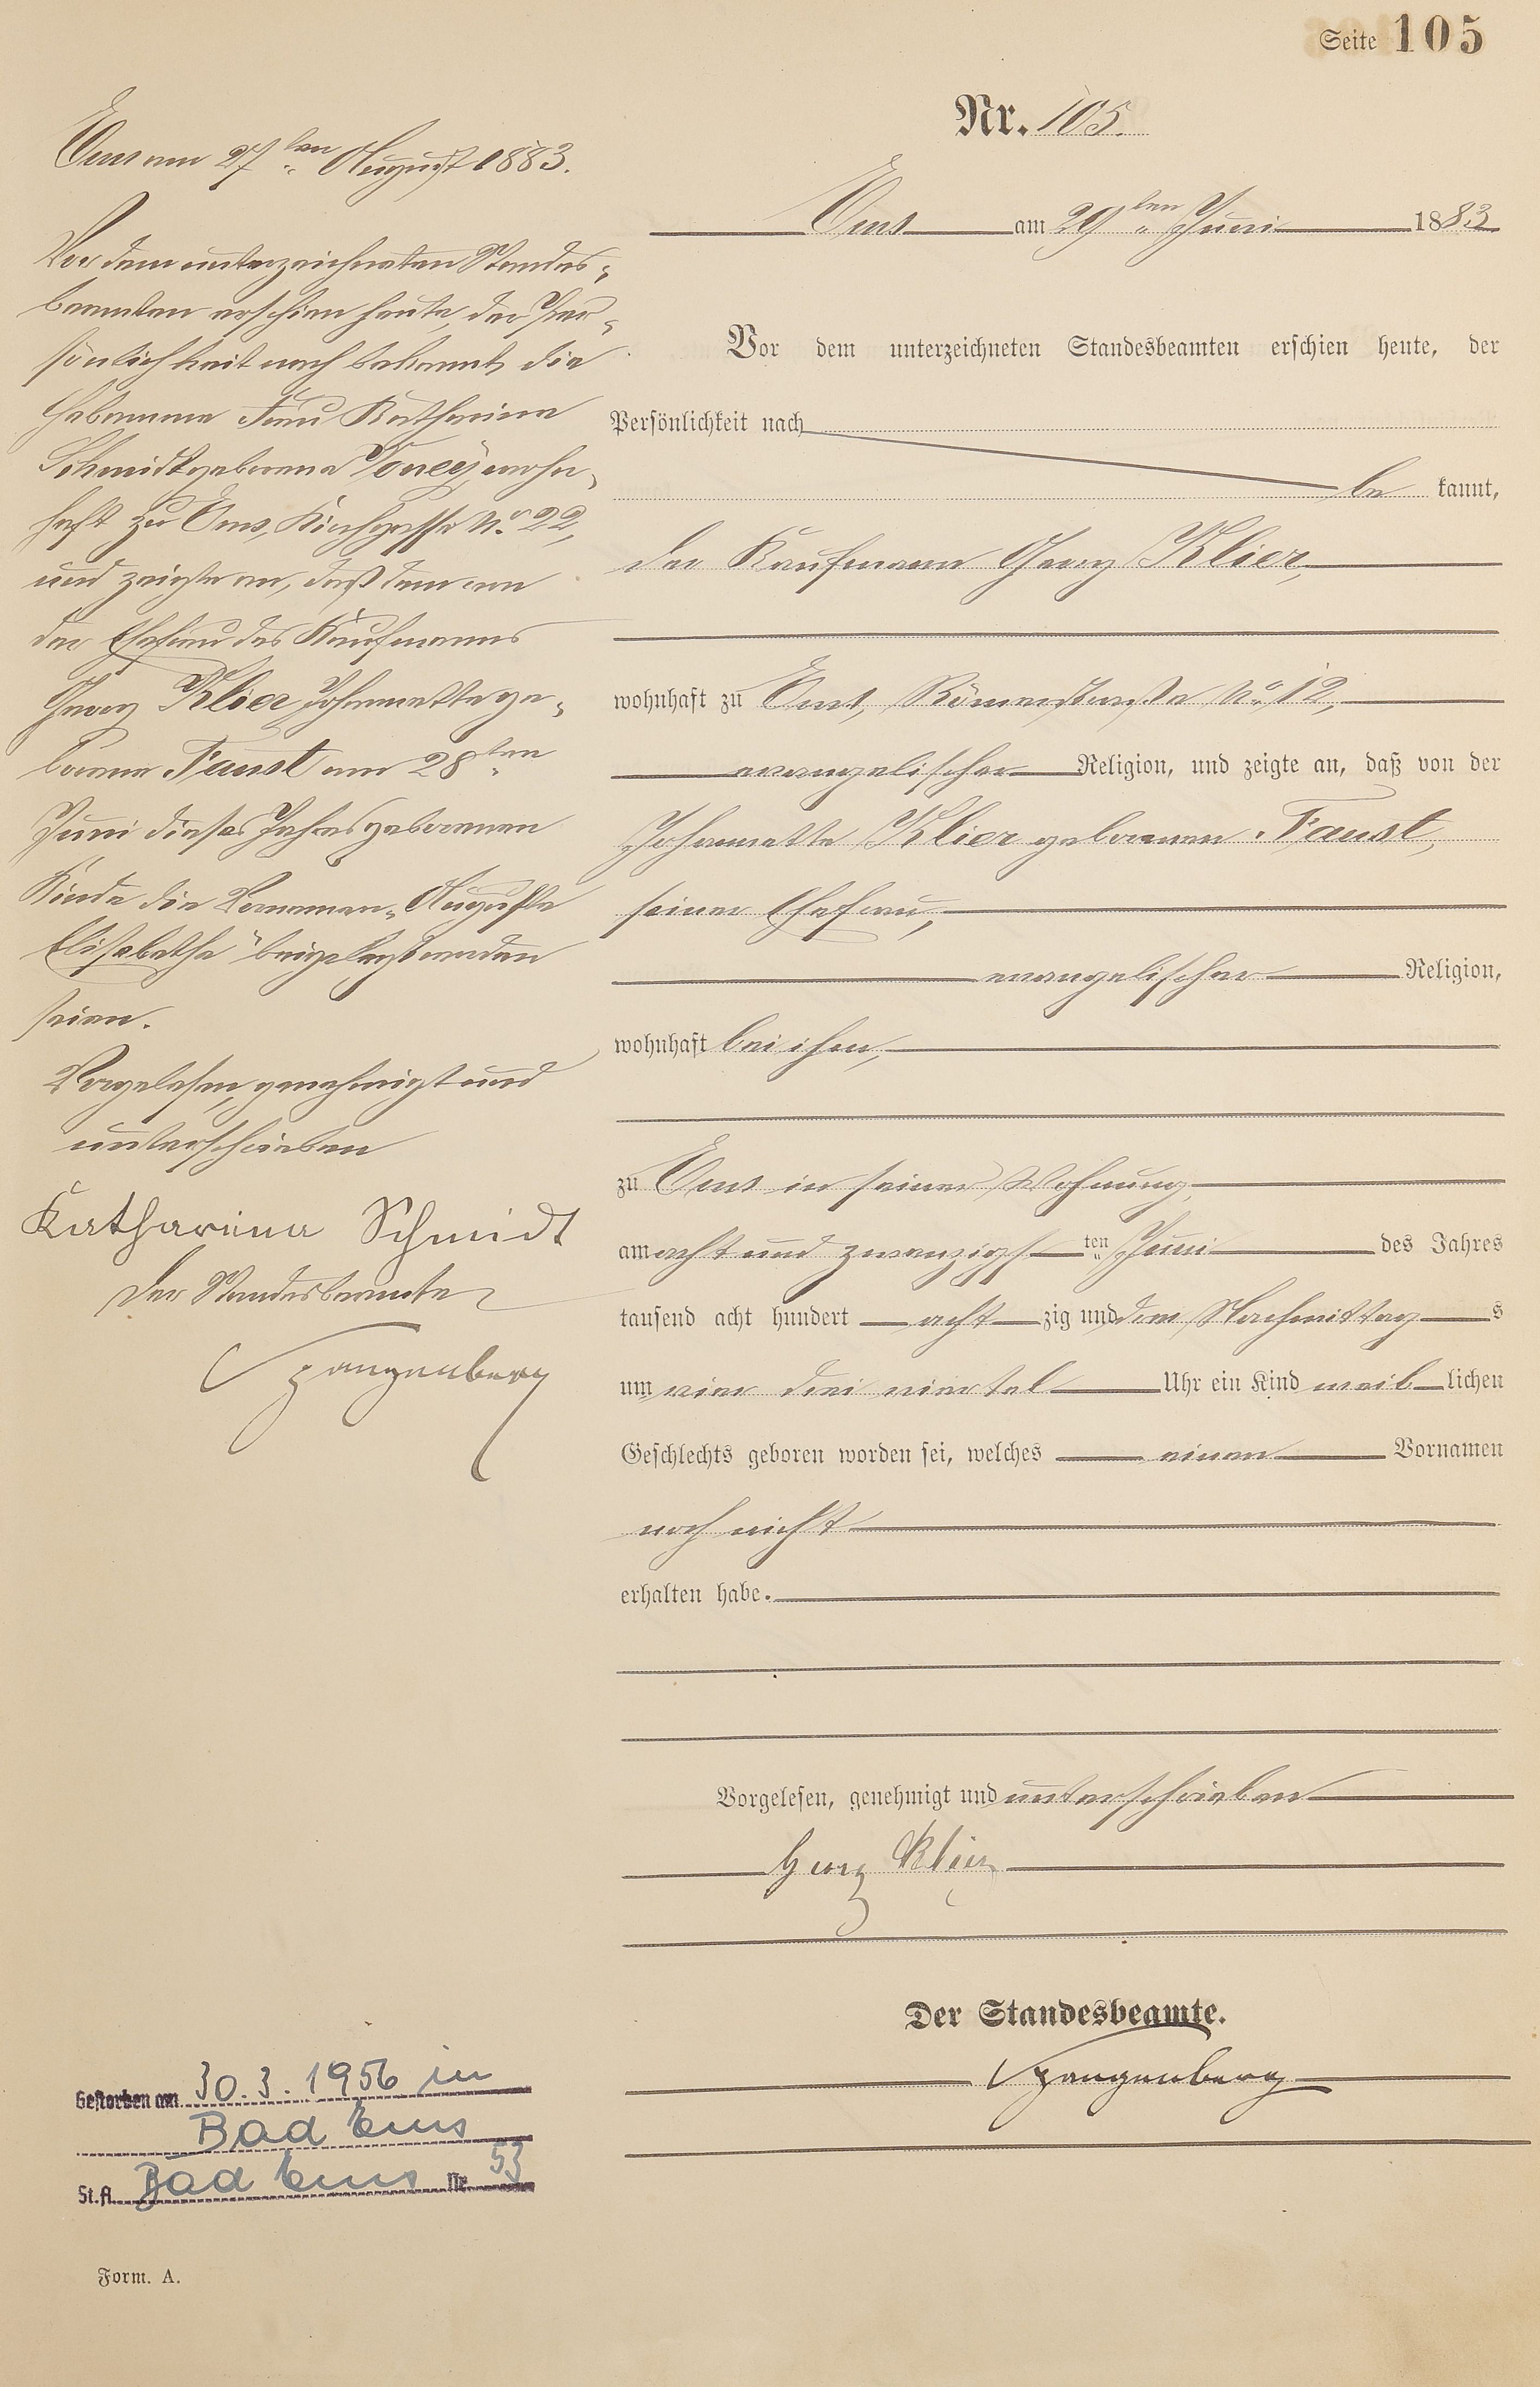 Seite 105
Nr. 105.
Ems am 29ten Juni 1883
Vor dem unterzeichneten Standesbeamten erschien heute, der
Persönlichkeit nach
be kannt,
der Kaufmann Georg Klier,
wohnhaft zu Ems, Römerstraße No. 12,
evangelischer Religion, und zeigte an, daß von der
Johannette Klier geborenen Faust,
seiner Ehefrau,
evangelischer Religion,
wohnhaft bei ihm,
zu Ems in seiner Wohnung,
am acht und zwanzigsten Juni des Jahres
tausend acht hundert acht zig und drei Nachmittags
um vier drei viertel Uhr ein Kind weiblichen
Geschlechts geboren worden sei, welches einen Vornamen
noch nicht
erhalten habe.
Vorgelesen, genehmigt und unterschrieben
Georg Klier
Der Standesbeamte.
Spangenberg
Ems am 27ten August 1883.
Vor dem unterzeichneten Standes-
beamten erschien heute, der Per-
sönlichkeit nach bekannt, die
Hebamme Frau Katharina
Schmidt geborene wohn-
haft zu Ems, Kirchgasse No. 22,
und zeigte an, daß dem von
der Ehefrau des Kaufmanns
Georg Klier Johannette ge-
borene Faust am 28ten
Juni dieses Jahres geborenen
Kinde die Vornamen „Auguste
Elisabetha" beigelegt worden
seien.
Vorgelesen, genehmigt und
unterschrieben
Katharina Schmidt
Der Standesbeamte
Spangenberg
Gestorben am 30.3.1956 in
Bad Ems
St.A. Bad Ems Nr. 53
Form. A.